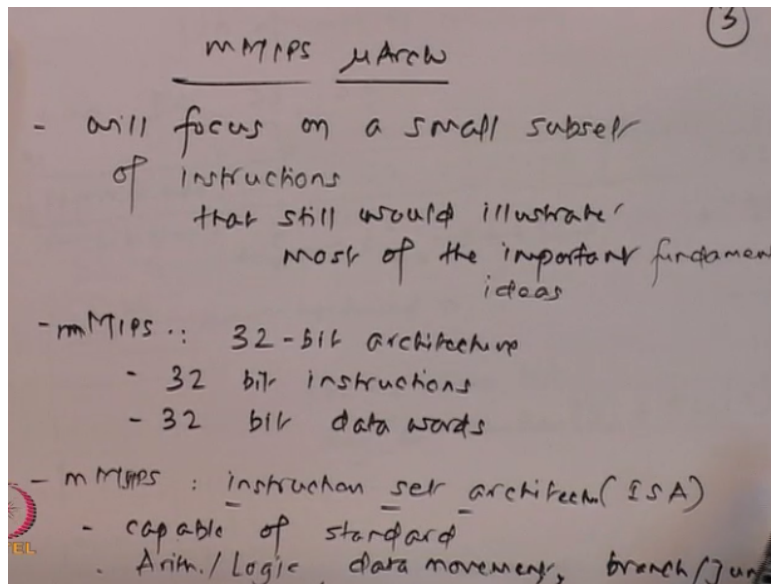 3
mMIPS μArch
- will focus on a small subset
of instructions
that still would illustrate
most of the important fundamen
ideas
- mMIPS : 32-bit architecture
- 32 bit instructions
- 32 bit data words
- mMIPS : instruction set architect. (ISA)
- capable of standard
TEL
. Arith./Logic data movement, branch/Jum